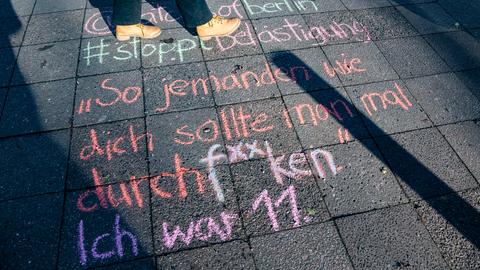 berlin
#stoppt belästigung
„So jemanden wie
dich sollte man mal
durchf**ken."
Ich war 11.